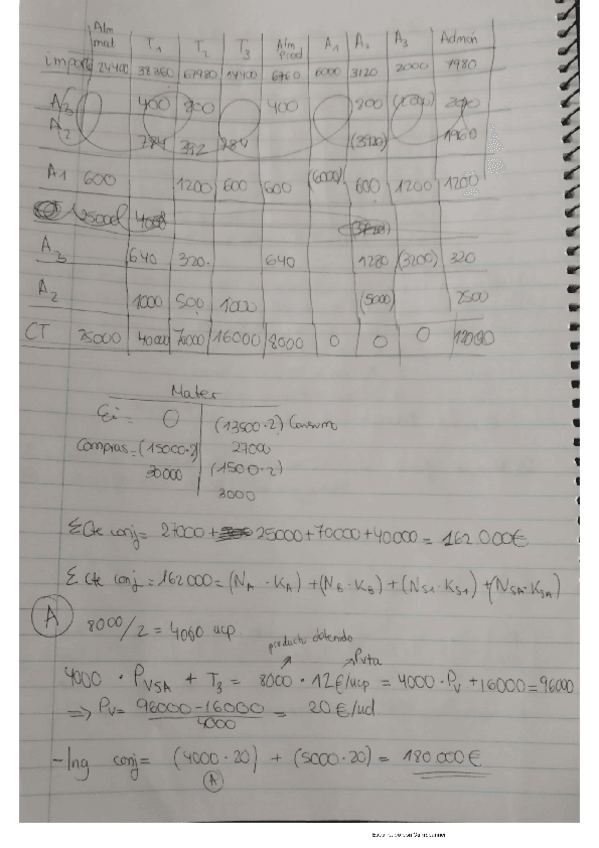 Alm mat T1 T2 T3 Alm Prod A1 A2 A3 Admón
importe 24400 38360 67980 14400 6760 6000 3120 2000 7980
A3 400 200 400 800
A2 784 392 784 (3920) 1960
A1 600 1200 600 600 (6000) 600 1200 1200
A3 640 320 640 1280 (3200) 320
A2 1000 500 1000 (5000) 2500
CT 25000 40000 70000 16000 8000 0 0 0 12000
Mater
Ei = 0 (13500·2) Consum
Compras = (15000·2) 27000
30000 (1500·2)
3000
ΣCte conj = 27000 + 25000 + 70000 + 40000 = 162.000€
ΣCte conj = 162000 = (NA · KA) + (NB · KB) + (NS1 · KS1) + (NSA · KSA)
A
8000/2 = 4000 ucp
producto obtenido
Pvta
4000 · PVSA + T3 = 8000 · 12€/ucp = 4000 · PV + 16000 = 96000
⇒ PV = 96000 - 16000 = 20€/ud
4000
- Ing conj = (4000 · 20) + (5000 · 20) = 180.000€
A